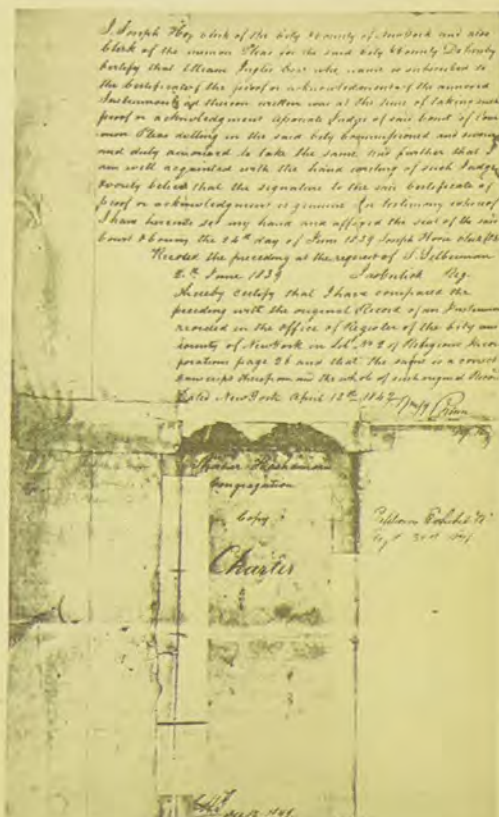 I Joseph Hoxie clerk of the City & County of New York and also
Clerk of the common Pleas for the said City & County Do hereby
certify that William Inglis Esqr whose name is subscribed to
the Certificate of the proof or acknowledgment of the annexed
Instrument & thereon written was at the time of taking such
proof or acknowledgment Associate Judge of said Court of Com
mon Pleas dwelling in the said City Commissioned and sworn
and duly authorised to take the same And further that I
am well acquainted with the hand writing of such Judge
& verily believe that the signature to the said Certificate of
proof or acknowledgment is genuine In testimony whereof
I have hereunto set my hand and affixed the seal of the said
Court & County the 24th day of June 1839 Joseph Hoxie clerk
Recorded the preceding at the request of S. Silberman
2. June 1839 Reg.
I hereby certify that I have compared the
preceding with the original Record of an Instrument
recorded in the office of Register of the City and
County of New York in Lib. No 2 of Religious Incor
porations page 26 and that the same is a correct
transcript therefrom and the whole of such original Record
Dated New York April 12th 1842
Congregation
Copy
Charter
Exhibit A